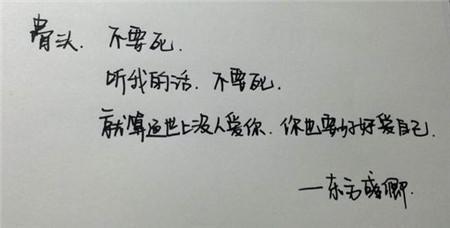 骨头.不要死.
听我的话.不要死.
就算这世上没人爱你.你也要好好爱自己.
—东方盛卿.